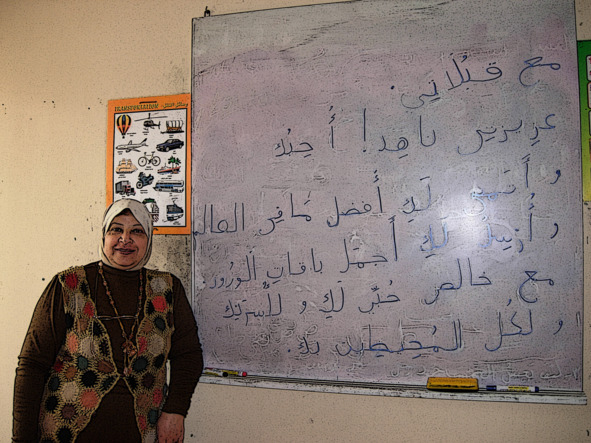 TRANSPORTATION
مع قُبُلاتِي.
عزيزتي ناهِد! أُحِبُّك
و أتمنى لَكِ أفضل مَافي العالم
و أُرسِلُ لَكِ أجمل باقاتِ الورُود
مع خالص حُبِّي لَكِ و لأسرَتك
و لكُل المُحِيطِين بك.